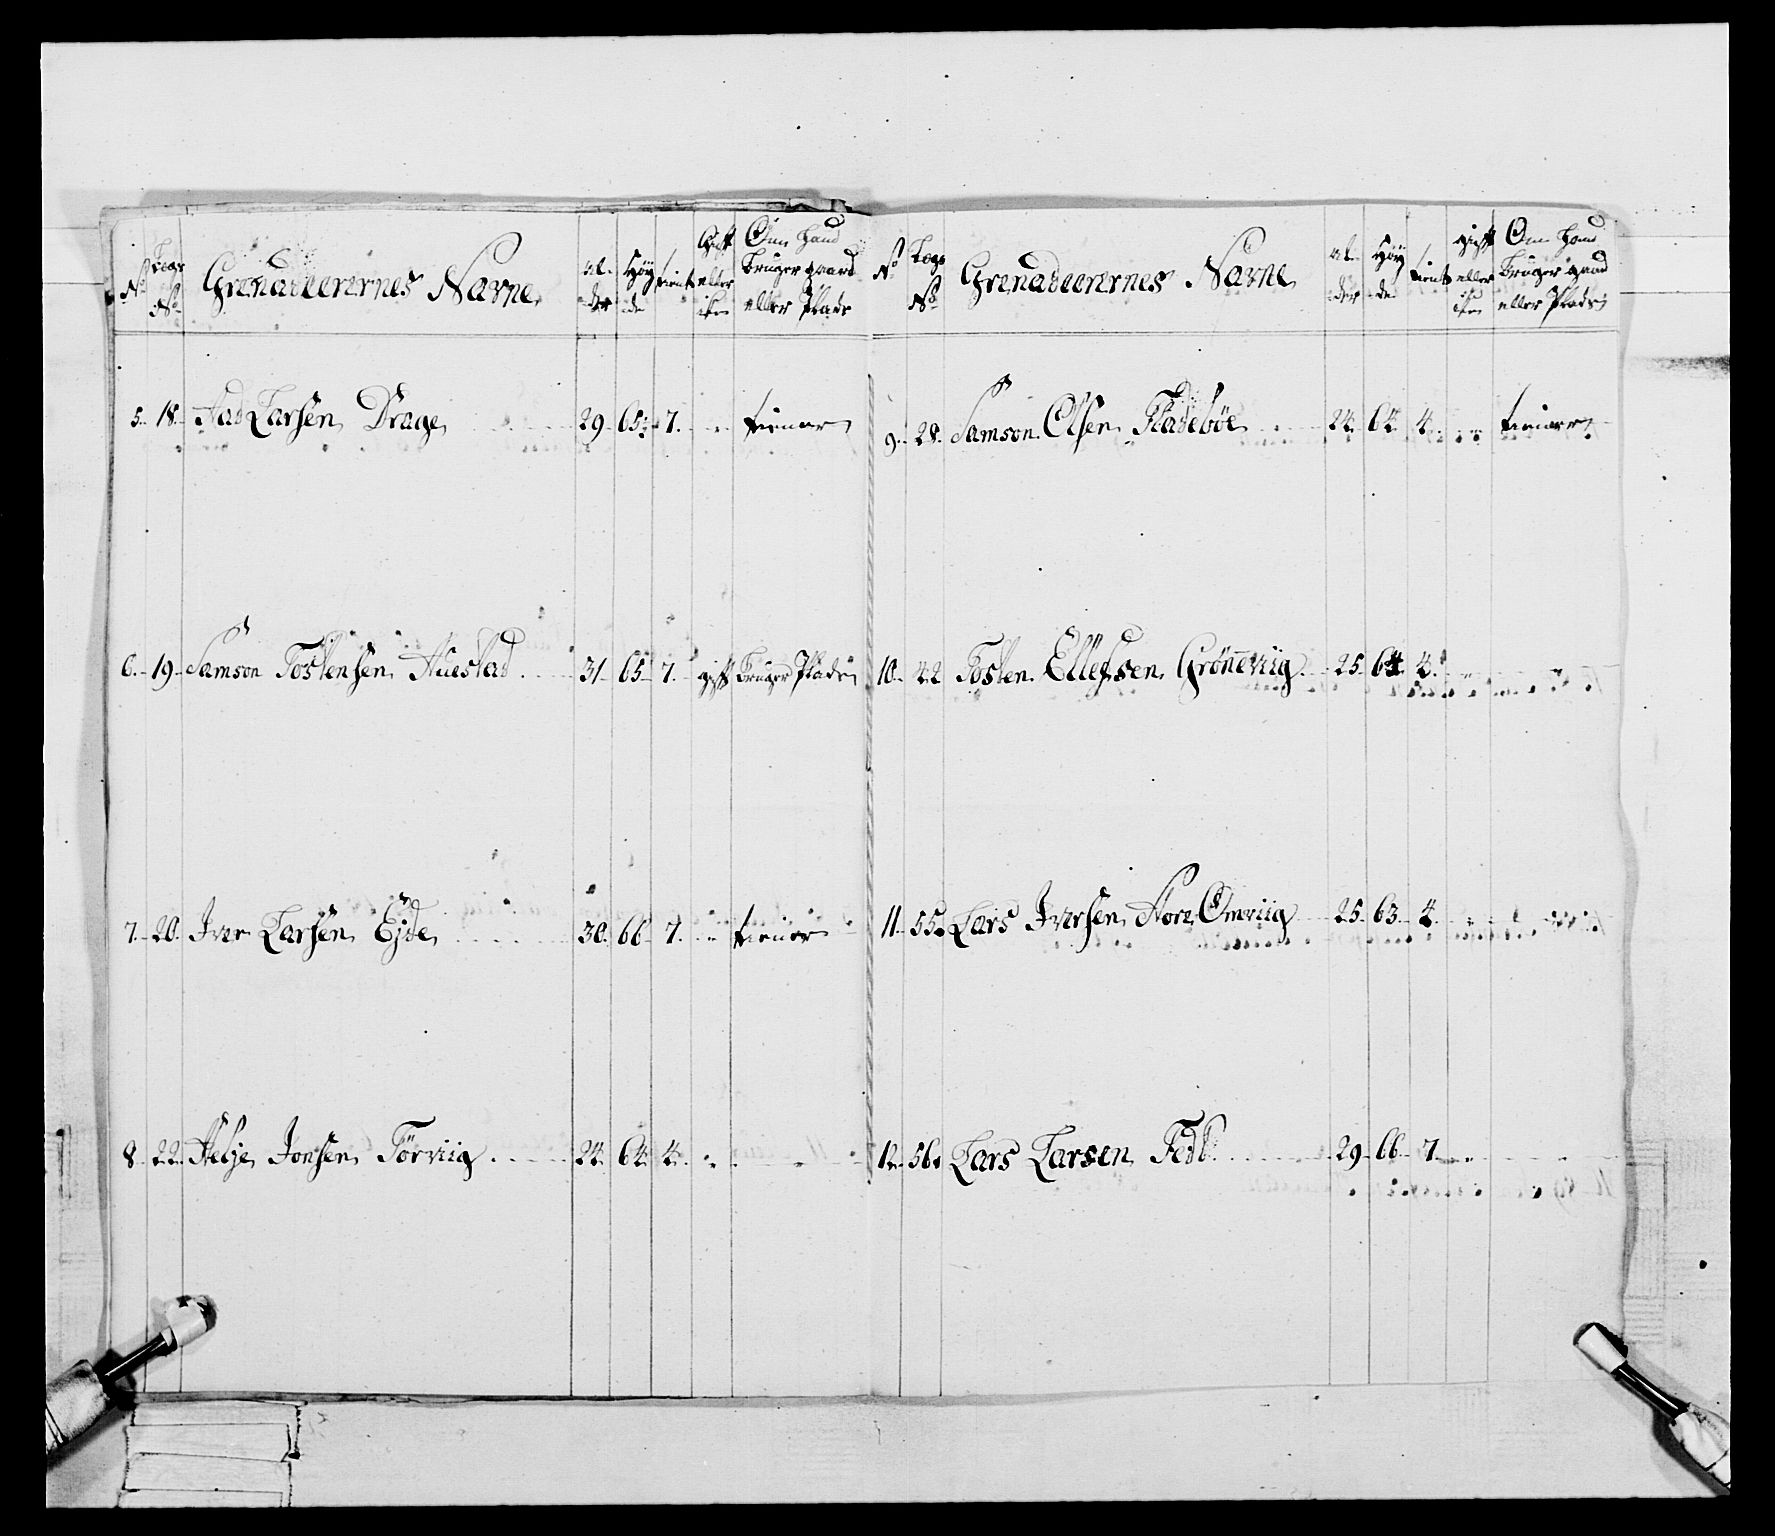 No Lægs No Grenadeerernes Navne Al-der Høy-de tient Gift eller ikke Om hand bruger gaard eller Plads
5. 18. Aad Larsen Drage 29 65½ 7. tiener
6. 19. Samson Tostensen Auestad 31 65 7. gift bruger Plads
7. 20. Iver Larsen Ejde 30. 66 7. tiener
8. 22. Helje Jonsen Törviig 24. 64. 4.
No Lægs No Grenadeerernes Navne Al-der Høy-de tient gift eller ikke Om hand bruger gaard eller Plads
9. 28. Samson Olsen Fladeböe 24. 64. 4. tiener
10. 42 Tosten Ellefsen Gröneviig 25 64. 4.
11. 55. Lars Iversen Store Omviig 25. 63. 4.
12. 56. Lars Larsen Fedt 29. 66 7.